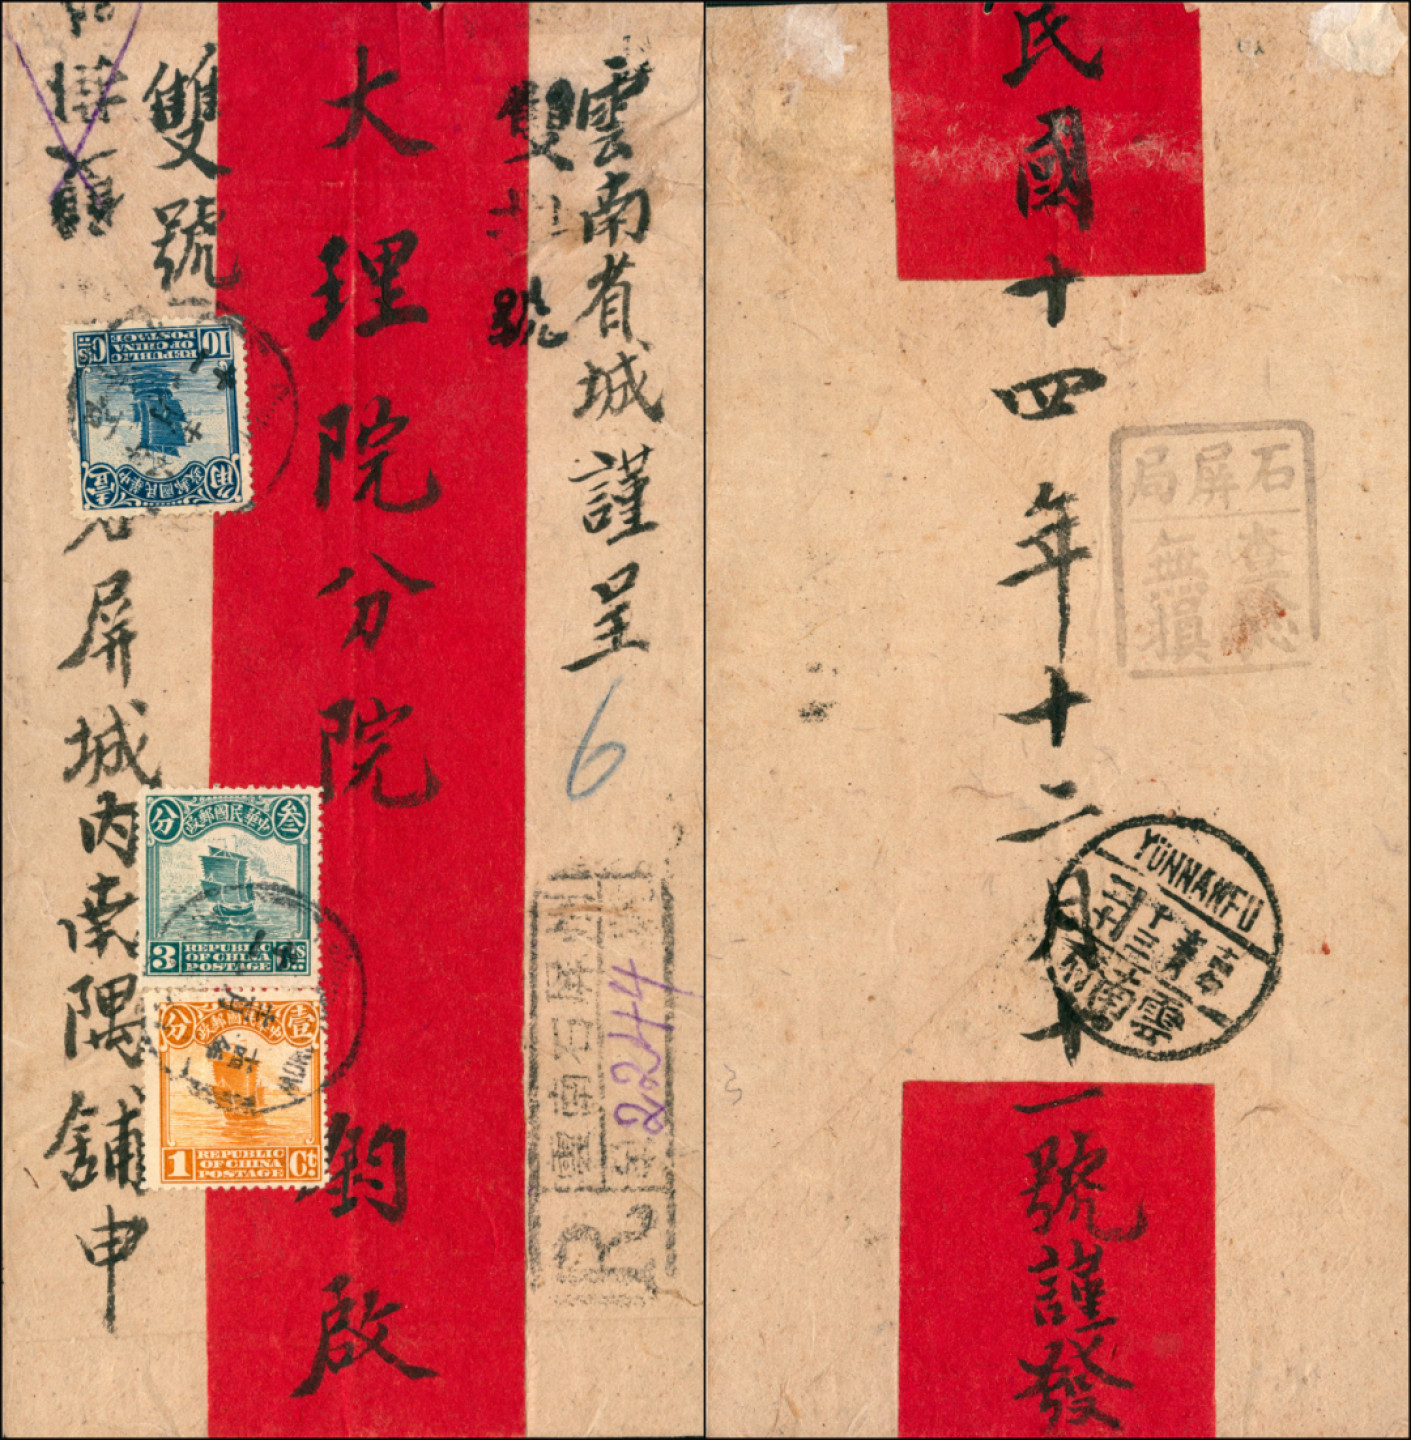 雲南省城謹呈
雙挂號
大理院分院
鈞啟
雙號
石屏城內南隅舖申
6
雲南石屏
R
2244
10
REPUBLIC
OF CHINA
POSTAGE
中華民國郵政
壹
角
叁
分
中華民國郵政
3
REPUBLIC
OF CHINA
POSTAGE
Cts
壹
分
中華民國郵政
1
REPUBLIC
OF CHINA
POSTAGE
Ct.
民國十四年十二月十一號謹發
石屏局
查驗
無損
YÜNNANFU
雲南